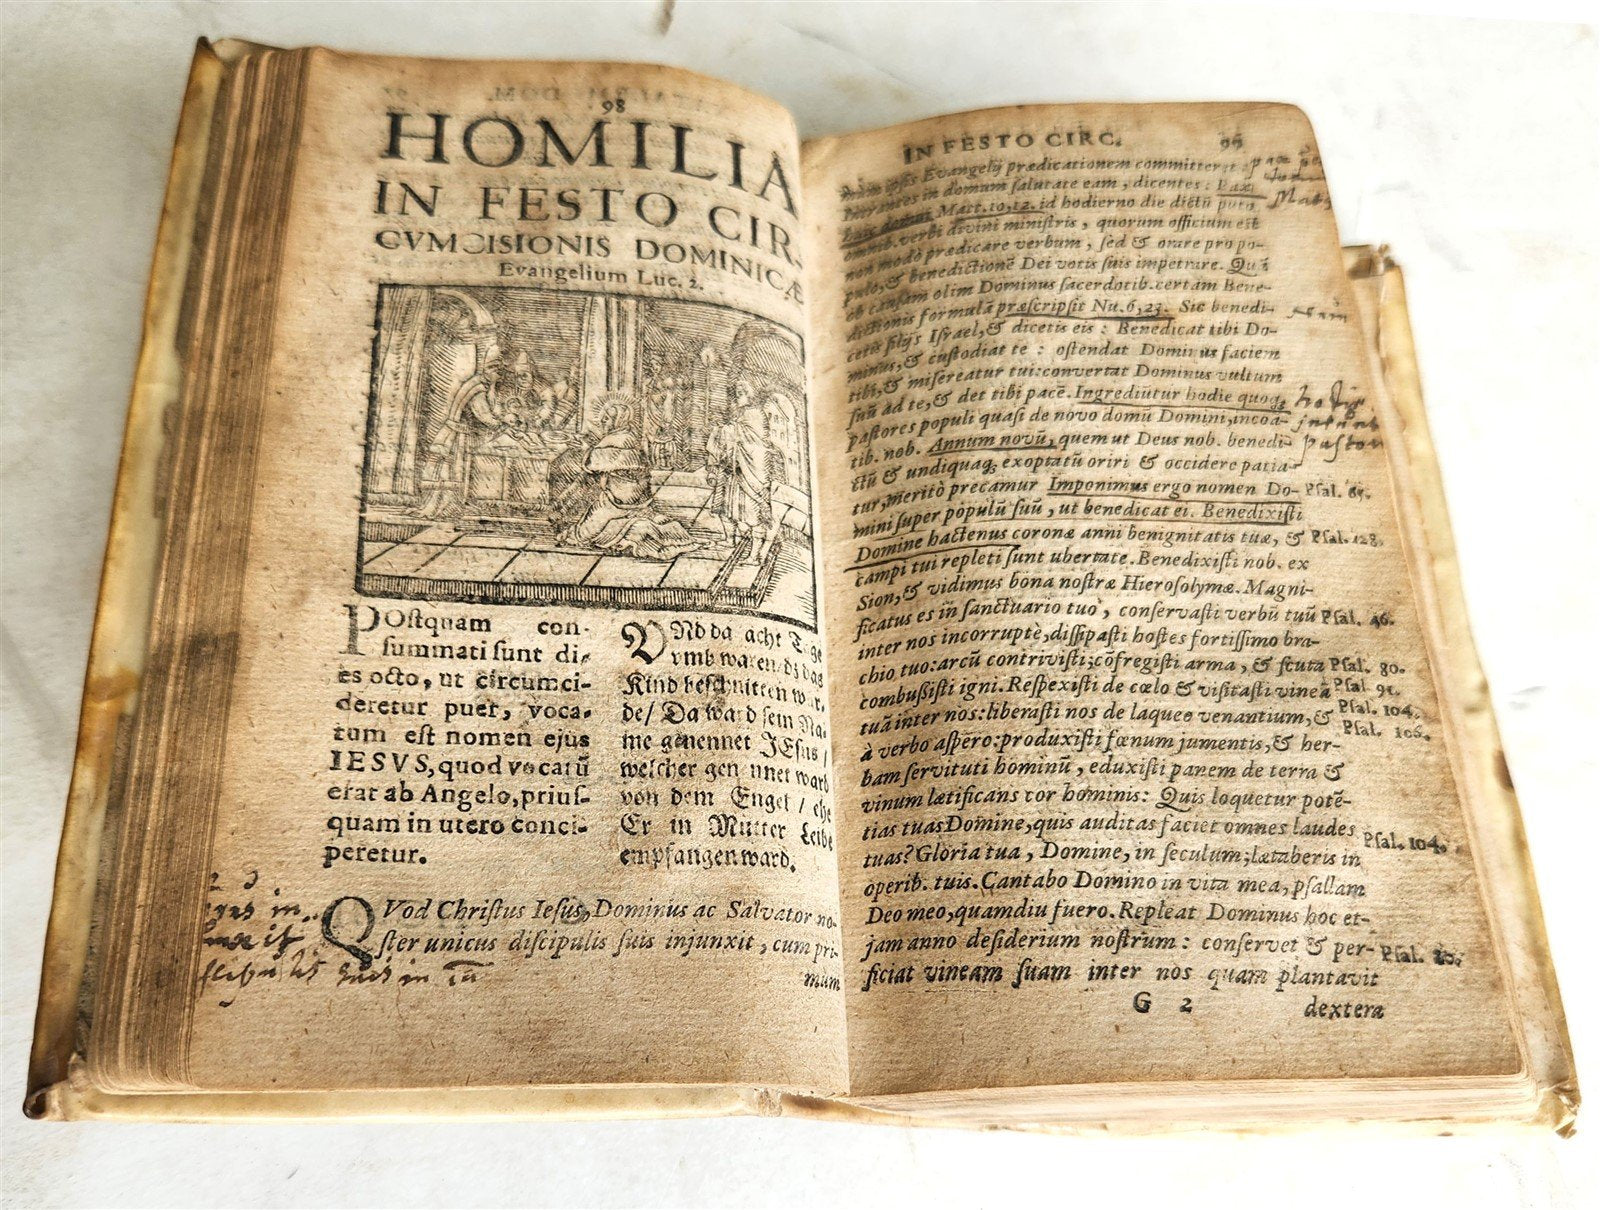 98
HOMILIA
IN FESTO CIR
CVMCISIONIS DOMINICÆ
Evangelium Luc. 2.
POstquam con-
summati sunt di-
es octo, ut circumci-
deretur puer, voca-
tum est nomen ejus
IESVS, quod vocatū
erat ab Angelo, prius-
quam in utero conci-
peretur.
VNd da acht Tage
vmb waren / dz das
Kind beschnitten wur-
de / Da ward sein Na-
me genennet JEsus /
welcher genennet ward
von dem Engel / ehe
Er in Mutter Leibe
empfangen ward.
QVod Christus Iesus, Dominus ac Salvator no-
ster unicus discipulis suis injunxit, cum pri-
mum
IN FESTO CIRC. 99
ipsis Evangelij prædicationem committeret:
Intrantes in domum salutate eam, dicentes: Pax
huic domui Matt. 10, 12. id hodierno die dictū puto
omnib. verbi divini ministris, quorum officium est
non modò prædicare verbum, sed & orare pro po-
pulo, & benedictionē Dei votis suis impetrare. Quā
ob causam olim Dominus sacerdotib. certam Bene-
dictionis formulā præscripsit Nu. 6, 23. Sic benedi-
cetis filijs Israel, & dicetis eis: Benedicat tibi Do-
minus, & custodiat te: ostendat Dominus faciem
tibi, & misereatur tui: convertat Dominus vultum
suū ad te, & det tibi pacē. Ingrediūtur hodie quoq;
pastores populi quasi de novo domū Domini, incoa-
tib. nob. Annum novū, quem ut Deus nob. benedi-
ctū & undiquaq; exoptatū oriri & occidere patia-
tur, meritò precamur Imponimus ergo nomen Do- Psal. 67.
mini super populū suū, ut benedicat ei. Benedixisti
Domine hactenus coronæ anni benignitatis tuæ, & Psal. 128.
campi tui repleti sunt ubertate. Benedixisti nob. ex
Sion, & vidimus bona nostræ Hierosolymæ. Magni-
ficatus es in sanctuario tuo, conservasti verbū tuū Psal. 46.
inter nos incorruptè, dissipasti hostes fortissimo bra-
chio tuo: arcū contrivisti; cōfregisti arma, & scuta Psal. 80.
combussisti igni. Respexisti de cœlo & visitasti vineā Psal. 91.
tuā inter nos: liberasti nos de laqueo venantium, & Psal. 104.
à verbo aspero: produxisti fœnum jumentis, & her- Psal. 106.
bam servituti hominū, eduxisti panem de terra &
vinum lætificans cor hominis: Quis loquetur potē-
tias tuas Domine, quis auditas faciet omnes laudes
tuas? Gloria tua, Domine, in seculum; lætaberis in Psal. 104.
operib. tuis. Cantabo Domino in vita mea, psallam
Deo meo, quamdiu fuero. Repleat Dominus hoc et-
jam anno desiderium nostrum: conservet & per- Psal. 80.
ficiat vineam suam inter nos quam plantavit
G 2 dextera